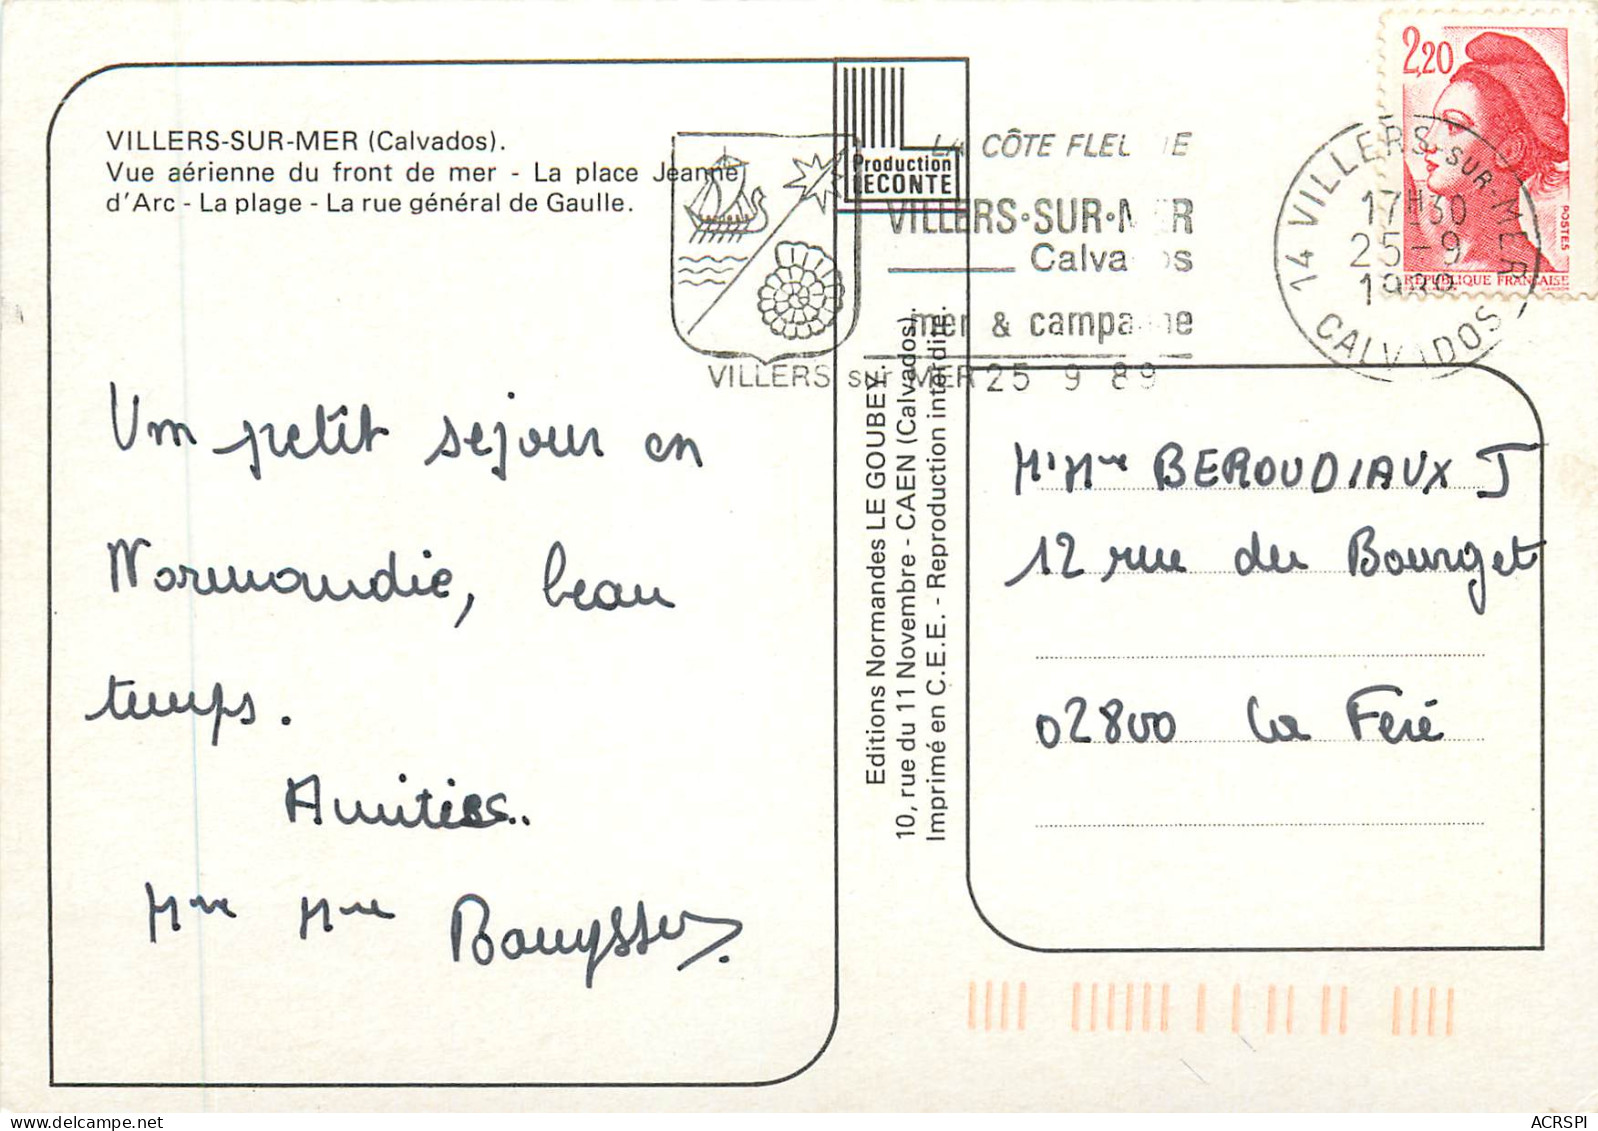 VILLERS-SUR-MER (Calvados).
Vue aérienne du front de mer - La place Jeanne
d'Arc - La plage - La rue général de Gaulle.
Production
LECONTE
LA CÔTE FLEURIE
VILLERS·SUR·MER
Calvados
mer & campagne
VILLERS sur MER 25 9 89
2,20
POSTES
RÉPUBLIQUE FRANÇAISE
14 VILLERS-SUR-MER
17H30
25-9
1989
CALVADOS
Un petit sejour en
Normandie, beau
temps.
Amitiés..
Mr Mme
Editions Normandes LE GOUBEY
10, rue du 11 Novembre - CAEN (Calvados).
Imprimé en C.E.E. - Reproduction interdite.
Mr Mme BEROUDIAUX J
12 rue du Bourget
02800 La Feré
ACRSPI